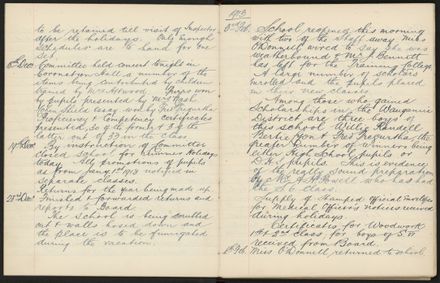 to be retained till visit of Inspector
after the holidays. Only enough
schedules are to hand for one
set.
Committee held concert tonight in
Coronation Hall a number of the
items being contributed by children
trained by Mr Atwood. Prizes won
by pupils presented by Mr Nash
when State Essay. and by Mr
Proficiency & Competency certificates
presented, 15 of the former & 7 of the
latter out of 23 in the class
19th Dec. By instruction of Committee
closed school for Xmas Holidays
today. The promotions of pupils
as from Jany 1st 1913 notified in
separate classes.
Returns for the year being made up.
23rd Dec. Finished & forwarded returns and
reports to Board.
The School is being scrubbed
out & walls hosed down and
the place is to be fumigated
during the vacation.
1913
3rd Feb. School reopened this morning
with two of the staff away. Miss
O'Donnell wired to say she was
weatherbound & Mr Bennett
has left for the Training College.
A large number of scholars
enrolled and the pupils placed
in their new classes.
Among those who gained
Scholarships in the Wanganui
District are three boys of
this school Willie Hansell
Bertie York & Rex, the
greater number of winners being
either High School pupils or
D.H.S. pupils. This is evidence
of the really sound preparation
of Mr who has had
the S6 class.
Supply of stamped official envelopes
for Medical Officer's notices received
during holidays.
Certificates for Woodwork
1st & 2nd class for boys of S.VI
received from Board.
Miss O'Donnell returned to school